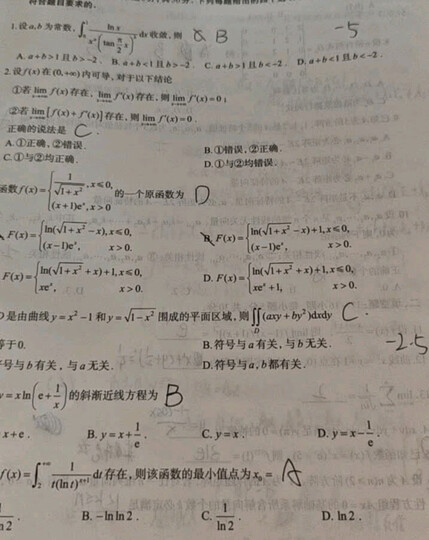 符合题目要求的.
1.设a,b为常数, ∫₀¹ ln x / (xᵃ(tan π/2 x)ᵇ) dx收敛,则 B -5
A. a+b>1且b>-2. B. a+b<1且b>-2. C. a+b>1且b<-2. D. a+b<1且b<-2.
2.设f(x)在(0,+∞)内可导,对于以下结论
①若lim f(x)存在, lim f'(x)存在,则lim f'(x)=0;
②若lim[f(x)+f'(x)]存在,则lim f'(x)=0.
正确的说法是 C.
A.①正确,②错误. B.①错误,②正确.
C.①与②均正确. D.①与②均错误.
函数f(x)={1/√(1+x²), x≤0, (x+1)eˣ, x>0 的一个原函数为 D
F(x)={ln(√(1+x²)-x), x≤0, (x-1)eˣ, x>0. B. F(x)={ln(√(1+x²)-x)+1, x≤0, (x-1)eˣ, x>0.
F(x)={ln(√(1+x²)+x)+1, x≤0, xeˣ, x>0. D. F(x)={ln(√(1+x²)+x)+1, x≤0, xeˣ+1, x>0.
D是由曲线y=x²-1和y=√(1-x²)围成的平面区域,则∬(axy+by²)dxdy C. D
等于0. B.符号与a有关,与b无关. -2.5
符号与b有关,与a无关. D.符号与a,b都有关.
y=xln(e+1/x)的斜渐近线方程为 B
x+e. B. y=x+1/e. C. y=x. D. y=x-1/e.
f(x)=∫₂⁺∞ 1/(t(ln t)ˣ⁺¹) dt存在,则该函数的最小值点为x₀= A
n2. B. -ln ln 2. C. 1/ln 2. D. ln 2.